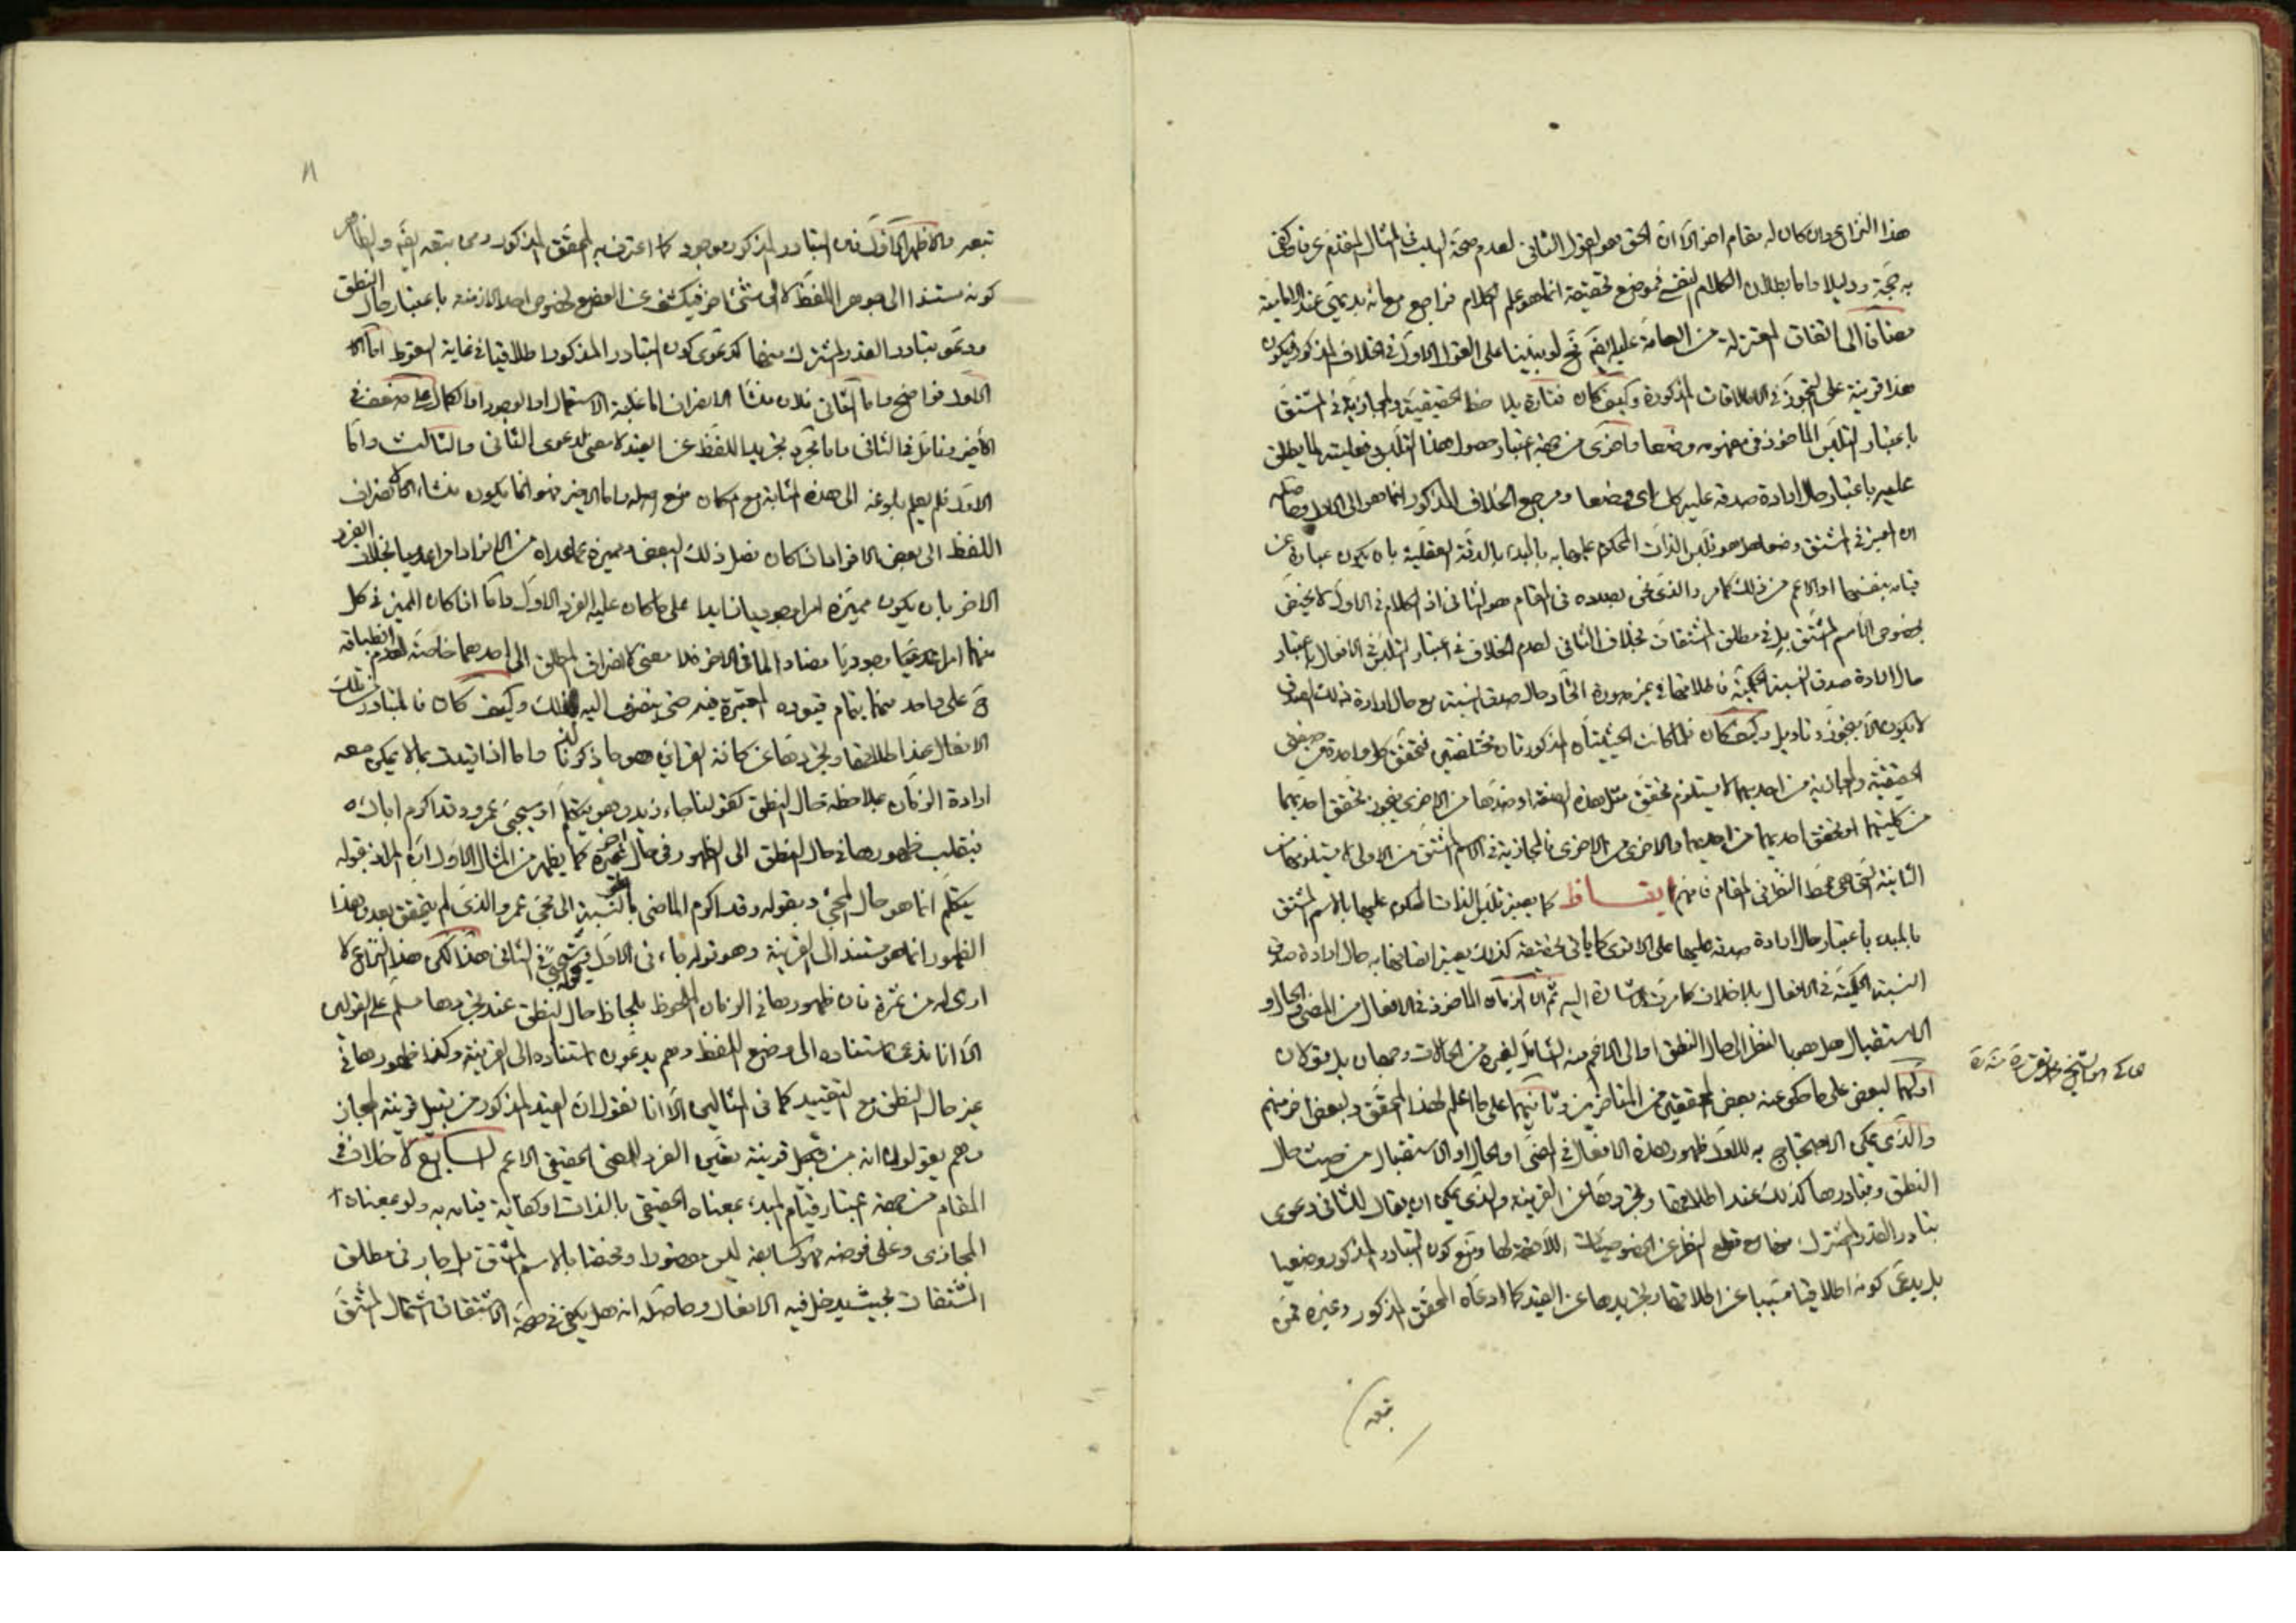 هذا النزاع وان كان له مقام اخر الا ان الحق هو القول الثانى لعدم صحة السلب فى المثال المتقدم عرفا وكفى
به حجة ودليلا واما بطلان الكلام النفسى فموضع تحقيقه انما هو علم الكلام فراجع مع انه بديهى عند الامامية
مضافا الى اتفاق المعتزلة من العامة عليه ايضا نعم لو بنينا على القول الاول فى الخلاف المذكور فيكون
هذا قرينة على التجوز فى الاطلاقات المذكورة وكيف كان فتارة يلاحظ الحقيقية والمجازية فى المشتق
باعتبار التلبس الماخوذ فى مفهومه وضعا واخرى من جهة اعتبار حصول هذا التلبس وفعليته لما يطلق
عليه باعتبار حال ارادة صدقه عليه كل اى وضعا ومرجع الخلاف المذكور انما هو الى الاول وحاصله
ان المعتبر فى المشتق وضعا هل هو تلبس الذات المحكوم عليها به بالمبدء بالدقة العقلية بان يكون عبارة عن
قيامه بنفسها او الاعم من ذلك كما مر والذى نحن بصدده فى المقام هو الثانى اذ الكلام فى الاول لا يختص
بخصوص الاسم المشتق بل فى مطلق المشتقات بخلاف الثانى لعدم الخلاف فى اعتبار التلبس فى الافعال باعتبار
حال ارادة صدق النسبة الحكمية فاطلاقها فى غير صورة اتحاد حال صدق النسبة مع حال ارادة ذلك الصدق
لا يكون الا بتجوز وتاويل وكيف كان فلما كانت الحيثيتان المذكورتان مختلفتين فتحقق كل واحدة من صفتى
الحقيقية والمجازية من احديهما لا يستلزم تحقق مثل هذه الصفة او ضدها من الاخرى فيجوز تحقق احديهما
من كلتيهما او تحقق احديهما من احديهما والاخرى من الاخرى فالمجازية فى الاسم المشتق من الاولى لا يستلزمها من
الثانية التى هى محط النظر فى المقام فافهم ايقاظ كما يعتبر تلبس الذات المحكوم عليها بالاسم المشتق
بالمبدء باعتبار حال ارادة صدقه عليها على الاقوى كما ياتى تحقيقه كذلك يعتبر اتصافها به حال ارادة صدق
النسبة الحكمية فى الافعال بلا خلاف كما مرت الاشارة اليه ثم ان الزمان الماخوذ فى الافعال من المضى والحال او
الاستقبال هل هو بالنظر الى حال النطق او الى الاعم منه الشامل لغيره من الحالات وجهان بل قولان
اولهما لبعض على ما حكى عنه بعض المحققين من المتاخرين وثانيهما على ما اعلم لهذا المحقق ولبعض اخر منهم
والذى يمكن الاحتجاج به للاول ظهور هذه الافعال فى المضى او الحال او الاستقبال من حيث حال
النطق وتبادرها كذلك عند اطلاقها وتجردها عن القرينة والذى يمكن ان يقال للثانى دعوى
تبادر القدر المشترك منها مع قطع النظر عن الخصوصيات اللاحقة لها ومنع كون التبادر المذكور وضعيا
بل يدعى كونه اطلاقيا مسببا عن اطلاقها وتجريدها عن القيد كما ادعاه المحقق المذكور وغيره ممن
تبعه
تبعه والاظهر الاول فان التبادر المذكور موجود كما اعترف به المحقق المذكور ومن تبعه ايضا والظاهر
كونه مستندا الى جوهر اللفظ لا الى شئ اخر فيكشف عن الوضع لخصوص احد الازمنة باعتبار حال النطق
ودعوى تبادر القدر المشترك منها كدعوى كون التبادر المذكور اطلاقيا فى غاية السقوط اما
الاول فواضح واما الثانى فلان منشأ الانصراف اما غلبة الاستعمال او الوجود او الكمال على ضعف فى
الاخير وتامل فى الثانى واما مجرد تجريد اللفظ عن القيد لا معنى لدعوى الثانى والثالث واما
الاول فلم يعلم بلوغه الى هذه المثابة مع امكان منع اصله واما الاخير فهو انما يكون منشاء لانصراف
اللفظ الى بعض الافراد اذا كان فصل ذلك البعض ومميزه عما عداه من الافراد امرا عدميا بخلاف الفرد
الاخر بان يكون مميزه امرا وجوديا زايدا على ما كان عليه الفرد الاول واما اذا كان المميز فى كل
منهما امرا وجوديا مضادا لما فى الاخر فلا معنى لانصراف المطلق الى احدهما خاصة لعدم انطباقه
ح على واحد منهما بتمام قيوده المعتبرة فيه حتى ينصرف اليه لذلك وكيف كان فالمتبادر من تلك
الافعال عند اطلاقها وتجردها عن كافة القرائن هو ما ذكرنا واما اذا قيدت بما لا يمكن معه
ارادة الزمان بملاحظة حال النطق كقولنا جاء زيد وهو يتكلم او سيجيئ عمرو وقد اكرم اباك
فينقلب ظهورها فى حال النطق الى الظهور فى حال اخر غيره كما يظهر من المثال الاول ان المراد بقوله
يتكلم انما هو حال المجئ وبقوله وقد اكرم الماضى بالنسبة الى مجئ عمرو الذى لم يتحقق بعد وهذا
الظهور انما هو مستند الى القرينة وهو قوله جاء فى الاول وسيجئ فى الثانى هذا لكن هذا النزاع لا
ارى له من ثمرة فان ظهورها فى الزمان الملحوظ بلحاظ حال النطق عند تجردها مسلم على القولين
الا انا ندعى استناده الى وضع اللفظ وهم يدعون استناده الى القرينة وكذا ظهورها فى
غير حال النطق مع التقييد كما فى المثالين الا انا نقول ان القيد المذكور من قبيل قرينة المجاز
وهم يقولون انه من قبيل قرينة تعيين الفرد للمعنى الحقيقى الاعم السابع لا خلاف فى
المقام من جهة اعتبار قيام المبدء بمعناه الحقيقى بالذات او كفاية قيامه به ولو بمعناه
المجازى وعلى فرضه فهو كسابقه ليس مخصوصا ومختصا بالاسم المشتق بل جار فى مطلق
المشتقات بحيث يدخل فيه الافعال وحاصله انه هل يكفى فى صحة الاشتقاق اشتمال المشتق